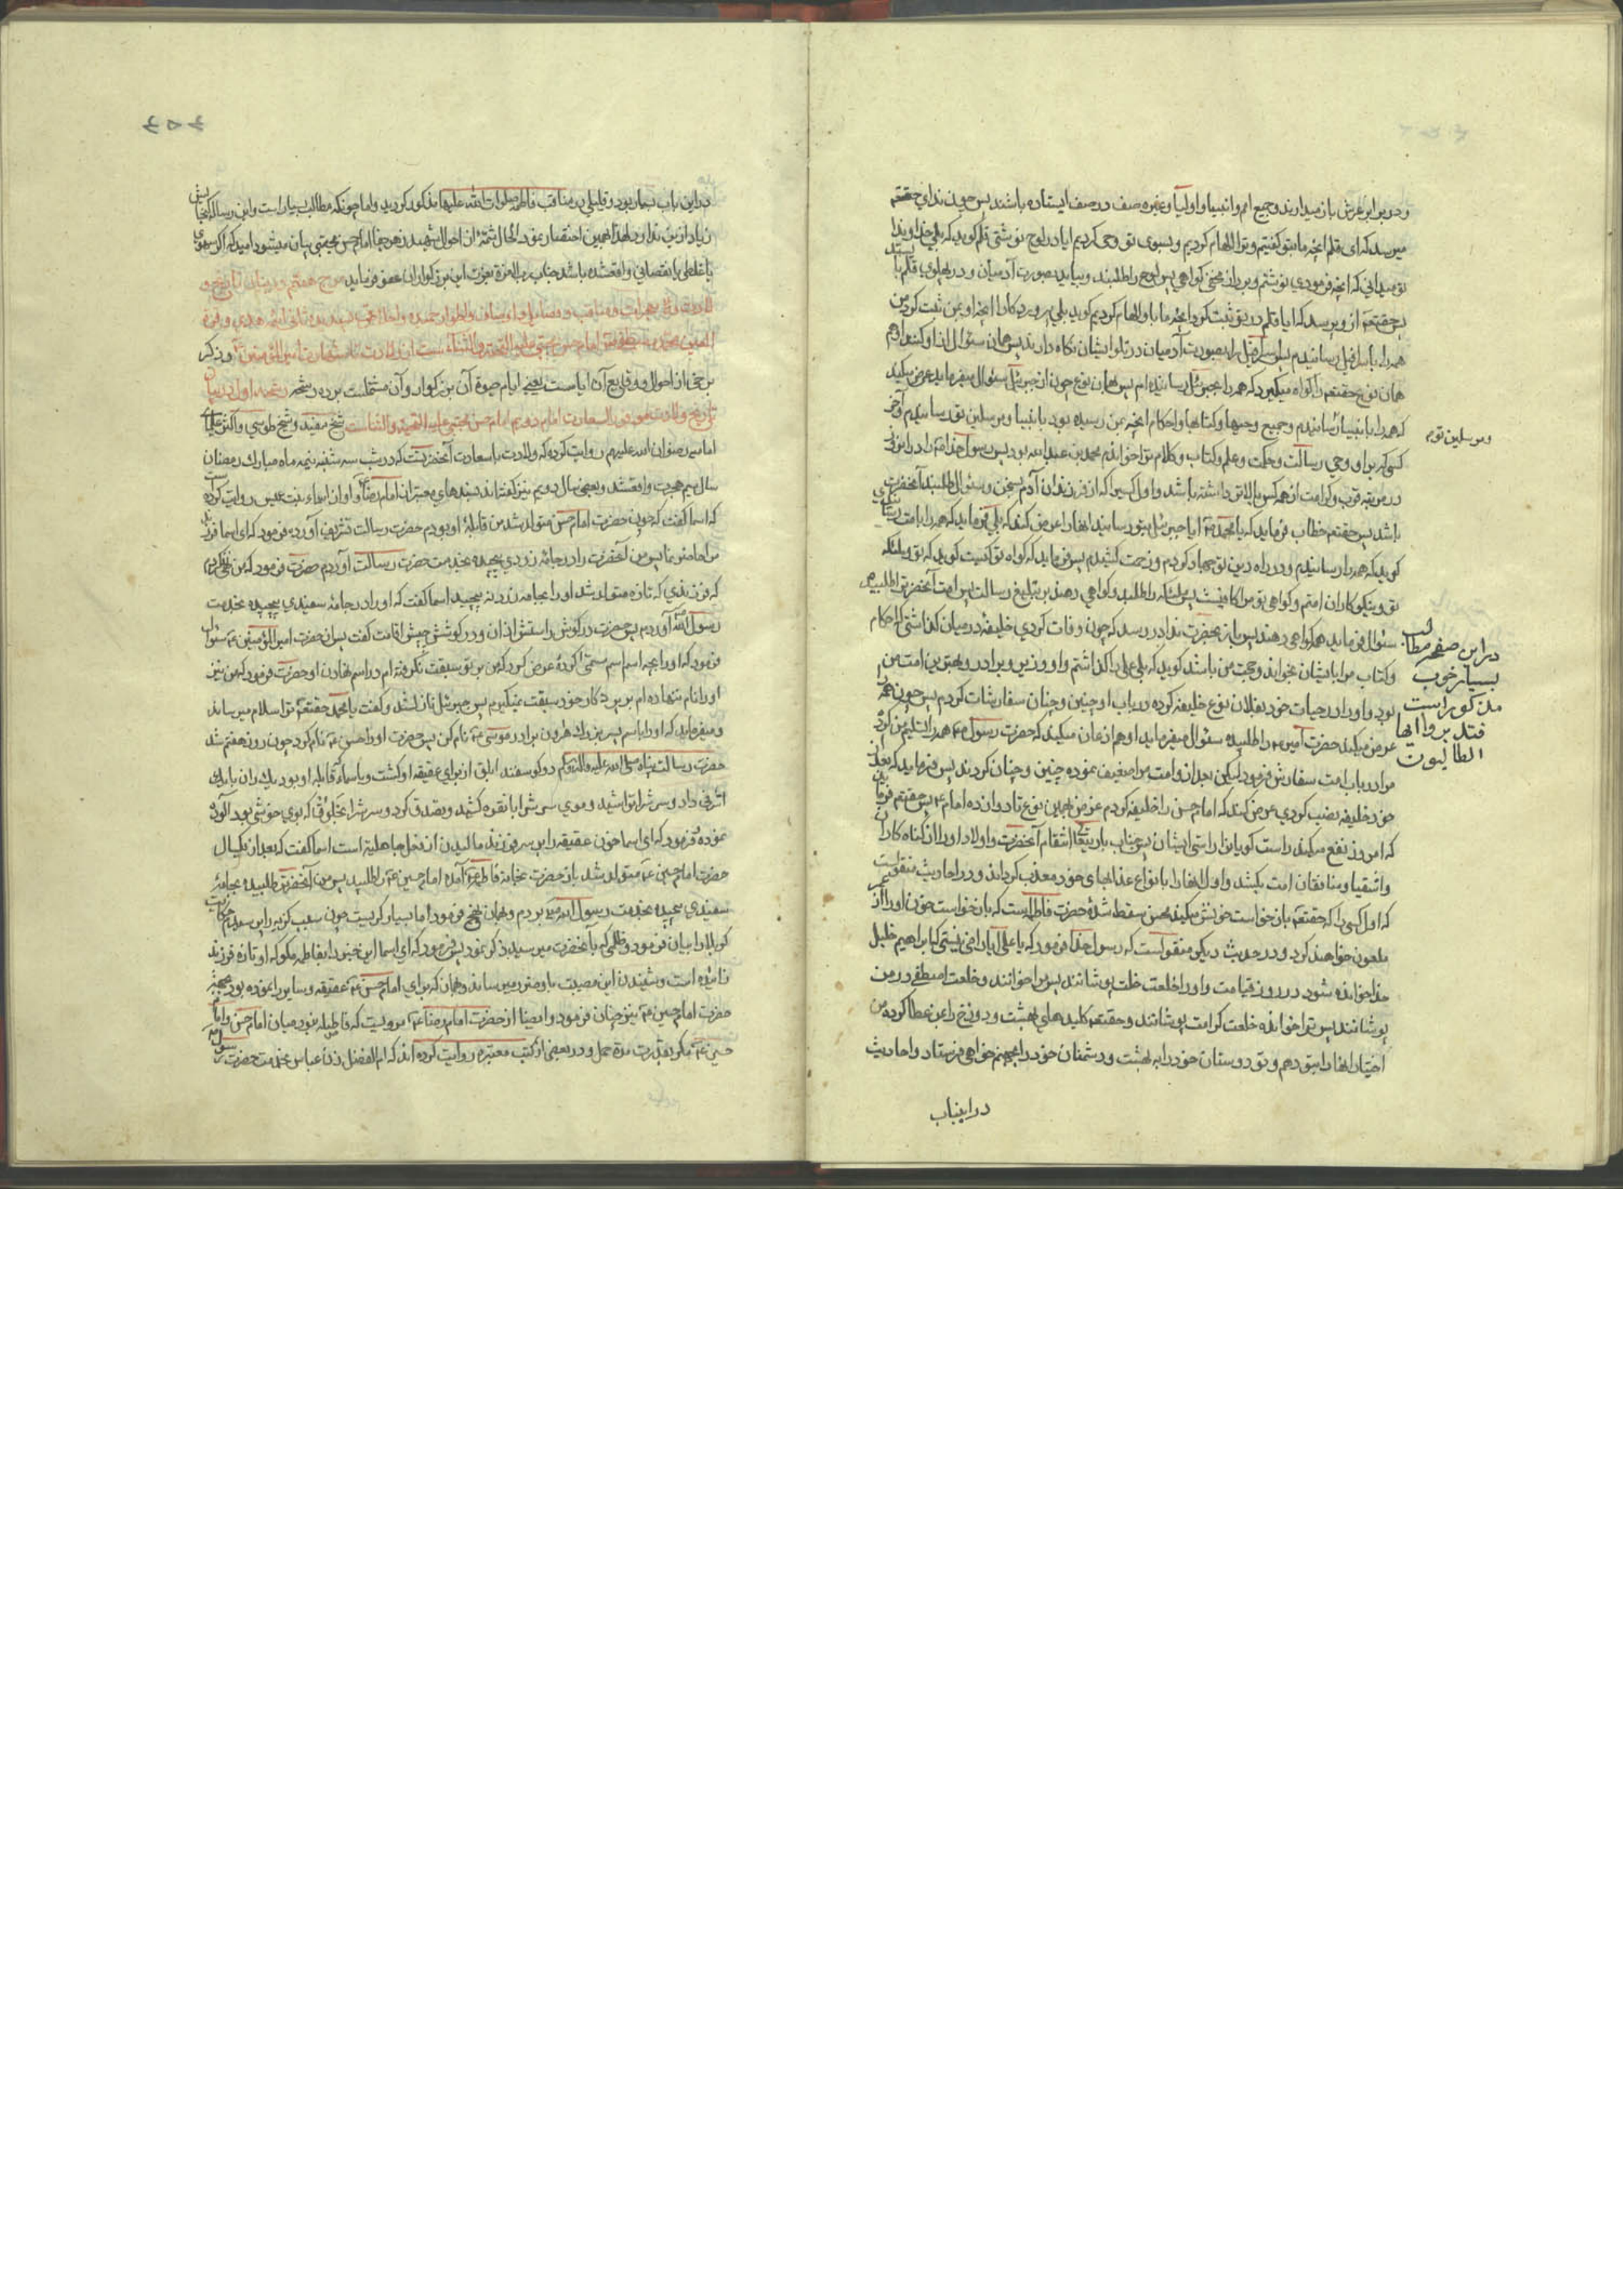 و در برابر عرش باز میدارند و جمیع امم و انبیا و اولیا و غیره صف در صف ایستاده باشند پس چون ندای حقتعم
میرسد که ای قلم آنچه ما بتو گفتیم و ترا الهام کردیم و بسوی تو وحی کردیم ایا در لوح نوشتی قلم گوید که بلی خداوندا
تو میدانی که آنچه فرمودی نوشتم و بر آن محی کواهی پس لوح را طلبند و بیاید بصورت آدمیان و در پهلوی قلم باستد
پس حقتعم از و پرسد که ایا قلم در تو ثبت کرد آنچه ما باو الهام کردیم گوید بلی پروردکارا آنچه او بمن ثبت کرد من
همه را باسرافیل رسانیدم پس اسرافیل را بصورت آدمیان در پهلو ایشان نگاه دارند پس همان سئوال از او کنند او هم
همان نوع حقتعم را گواه میگیرد که همه را بجبرئیل رسانیده ام پس بهمان نوع چون از جبرئیل سئوال میفرماید عرض میکند
که همه را بانبیا رسانیدم و جمیع وحیها و کتابها و احکام آنچه بمن رسیده بود بانبیا و مرسلین تو رسانیدم و آخر
و مرسلین توم
کسی که بر او وحی رسالت و حکمت و علم و کتاب و کلام ترا خواندم محمد بن عبدالله بود پس رسول خدا
در مرتبه قرب و کرامت از همه کس بالاتر داشته باشد و اول کسی که از فرزندان آدم بسخن و سئوال طلبند آنحضرت
باشد پس حقتعم خطاب فرماید که یا محمد ایا جبرئیل بتو رسانید آنها را عرض کند که بلی فرماید که همه را بامت رسانیدی
گوید که همه را رسانیدم و در راه دین تو جهاد کردم و زحمت کشیدم پس فرماید که گواه تو کیست گوید که تو و ملئکه
تو و نیکوکاران امتم و کواهی تو مرا کافیست پس ملئکه را طلبید و کواهی دهند بر تبلیغ رسالت پس امت آنحضرترا طلبیده
سئوال فرماید همه کواهی دهند پس باز بحضرت ندا در رسد که چون وفات کردی خلیفهٔ در میان گذاشتی که احکام
و کتاب مرا بایشان بخواند و حجت من باشد گوید که بلی علی را گذاشتم و او وزیر و برادر و بهترین امت من
بود و او را در حیات خود بفلان نوع خلیفه کرده در باب او چنین و چنان سفارشات کردم پس چون همه را
در این صفحه مطالب
بسیار خوب
مذکور است
فتدبروا ایها
الطالبون
عرض میکند حضرت امیر را طلبیده سئوال میفرماید او همان عرض میکند که حضرت رسول همه را تسلیم من کرد
مرا در باب امت سفارش فرمود لیکن بعد از او امت مرا ضعیف نموده چنین و چنان کردند پس فرماید که بعد از
خود خلیفه نصب کردی عرض کند که امام حسن را خلیفه کردم غرض همین نوع تا دوازده امام پس حقتعم فرماید
که امروز نفع میکند راست گویانرا راستی ایشان پس جناب باریتعالی انتقام آنحضرت و اولاد او را از گناه کاران
و اشقیا و منافقان امت بکشد و اول آنها را بانواع عذابهای خود معذب گرداند و در احادیث منقولست
که اول کسی را که حقتعم بازخواست خونش میکند محسن سقط شدهٔ حضرت فاطمه است که بازخواست خون او را از عمر
ملعون خواهند کرد و در حدیث دیگر منقولست که رسول خدا فرمود که یا علی آیا راضی نیستی که ابراهیم خلیل
خدا خوانده شود در روز قیامت و او را خلعت خلت پوشانند پس مرا خوانند و خلعت اصطفا در من
پوشانند پس ترا خوانده خلعت کرامت پوشانند و حقتعم کلیدهای بهشت و دوزخ را بمن عطا کرده من
اختیار آنها را بتو دهم و تو دوستان خود را به بهشت و دشمنان خود را بجهنم خواهی فرستاد و احادیث
دراینباب
در این باب بسیار بود و قلیلی در مناقب فاطمه صلوات الله علیها مذکور گردید و اما چونکه مطالب بسیار است و این رساله گنجایش
زیاد ازین ندارد لهذا بهمین اختصار نمود الحال شمهٔ از احوال شهید زهر جفا امام حسن مجتبی بیان میشود امید که اگر سهوی
یا غلطی یا نقصانی واقعشده باشد جناب رب العزة بعزت این بزرگواران عفو فرماید موج هفتم در بیان تاریخ و
ولادت و معجزات و مناقب و فضایل و اوصاف و اطوار حمیده و اخلاق پسندیده ثانی ائمه هدی و قرة
العین محمد مصطفی امام حسن مجتبی علیه التحیة والثناء است از ولادت تا شهادت امیرالمؤمنین و ذکر
برخی از احوال و وقایع آن ایامست یعنی ایام حیوة آن بزرگوار و آن مشتملست بر ده رشحه رشحه اول در بیان
تاریخ ولادت موفور السعادت امام دویم امام حسن مجتبی علیه التحیة والثناست شیخ مفید و شیخ طوسی و اکثر علمای
امامیه رضوان الله علیهم روایت کرده که ولادت باسعادت آنحضرت که در شب سه شنبه نیمه ماه مبارک رمضان
سال سیم هجرت واقعشد و بعضی سال دویم نیز گفته اند بسندهای معتبر از امام رضا و او از اسماء بنت عمیس روایت کرده
که اسما گفت که چون حضرت امام حسن متولد شد من قابلهٔ او بودم حضرت رسالت تشریف آورده فرمود که ای اسما فرزند
مرا حاضر نما پس من آنحضرت را در جامهٔ زردی پیچیده بخدمت حضرت رسالت آوردم حضرت فرمود که من نگفتم
که فرزندی که تازه متولد شد او را بجامه زرد نه پیچید اسما گفت که او را در جامهٔ سفیدی پیچیده بخدمت
رسول الله آوردم پس حضرت در گوش راستش اذان و در گوش چپش اقامت گفت پس از حضرت امیرالمؤمنین سئوال
فرمود که او را بچه اسم مسمی کردهٔ عرض کرد که من بر تو سبقت نگرفته ام در اسم نهادن او حضرت فرمود که من نیز
او را نام ننهاده ام بر پروردگار خود سبقت نمیگیرم پس جبرئیل نازلشد و گفت یا محمد حقتعم ترا سلام میرساند
و میفرماید که او را باسم پسر بزرگ هرون برادر موسی نام کن پس حضرت او را حسن نام کرد چون روز هفتم شد
حضرت رسالت پناه صلی الله علیه و آله و سلم دو گوسفند ابلق از برای عقیقه او کشت و باسماء قابله او بود یک ران با یک
اشرفی داد و سرش را تراشید و موی سرش را با نقره کشید و تصدق کرد و سرش را بخلوق که بوی خوشی بود آلوده
نموده فرمود که ای اسما خون عقیقه را بر سر فرزند مالیدن از فعل جاهلیة است اسما گفت که بعد از یکسال
حضرت امام حسین متولد شد باز حضرت بخانهٔ فاطمه آمده امام حسین را طلبید پس من آنحضرترا طلبیده بجامهٔ
سفیدی پیچیده بخدمت رسول الله بردم و بهمان نهج فرمود اما بسیار گریست چون سبب گریه را پرسیدم حکایت
کربلا را بیان فرمود و ظلمی که بآنحضرت میرسید ذکر نمود پس فرمود که ای اسما این خبر را بفاطمه مگو که او تازه فرزند
زائیده است و شنیدن این مصیبت باو ضرر میرساند و همان که برای امام حسن عقیقه و سایر را نموده بود بجهت
حضرت امام حسین نیز چنان فرمود و ایضا از حضرت امام رضا مرویست که فاصله نبود میان امام حسن و امام
حسین مگر بقدر مدة حمل و در بعضی از کتب معتبره روایت کرده اند که ام الفضل زن عباس بخدمت حضرت رسول